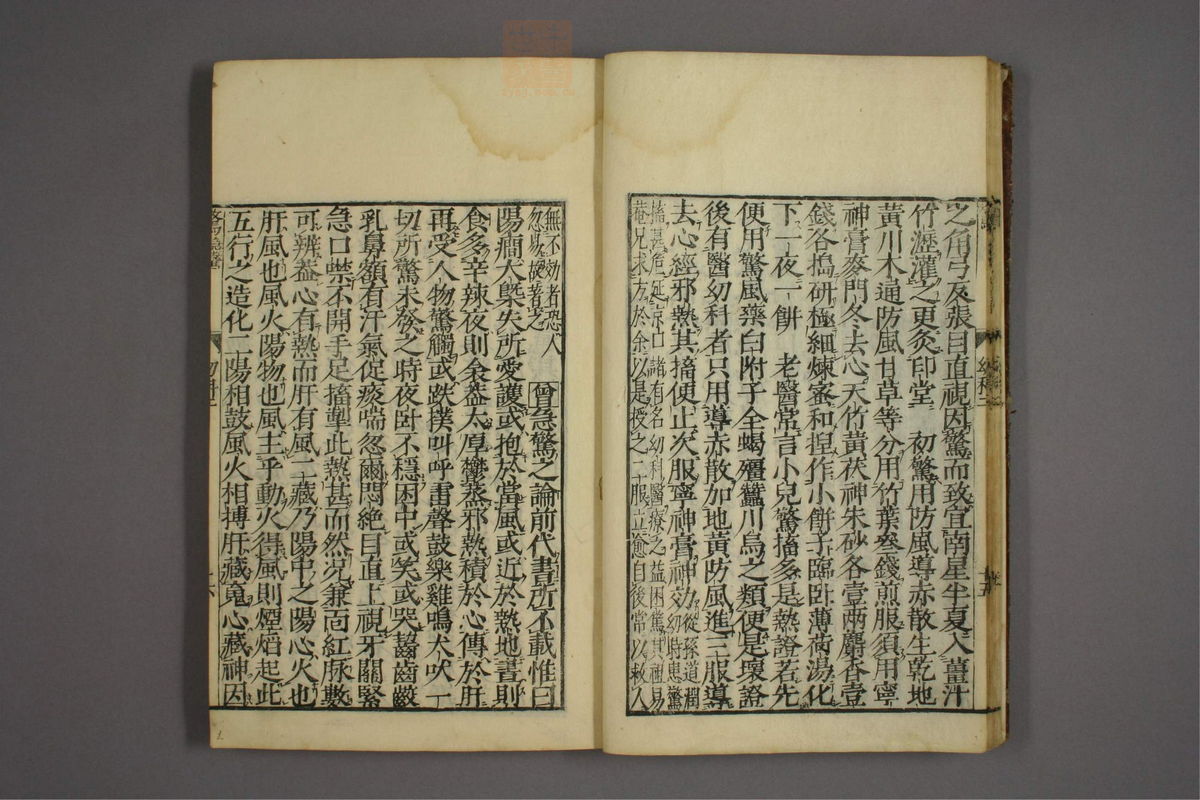 之角弓反張目直視因驚而致宜南星半夏入薑汁
竹瀝灌之更灸印堂 初驚用防風導赤散生乾地
黃川木通防風甘草等分用竹葉叄錢煎服須用寧
神膏麥門冬去心天竹黃茯神朱砂各壹兩麝香壹
錢各搗研極細煉蜜和捏作小餅子臨卧薄荷湯化
下一夜一餅 老醫常言小兒驚搐多是熱證若先
便用驚風藥白附子全蝎殭蠶川烏之類便是壞證
後有醫幼科者只用導赤散加地黃防風進三服導
去心經邪熱其搐便止次服寧神膏神効從孫道潤幼時患驚
搐甚危延京口諸有名幼科醫療之益困篤其祖易
菴兄求方於余以是授之二服立愈自後常以救人
無不効者恐人
忽易嫚著之
曾急驚之論前代書所不載惟曰
陽癎大槩失所愛護或抱於當風或近於熱地晝則
食多辛辣夜則衾蓋太厚鬱蒸邪熱積於心傳於肝
再受人物驚觸或跌撲叫呼雷聲鼓樂雞鳴犬吠一
切所驚未發之時夜卧不穩困中或笑或哭齧齒齩
乳鼻額有汗氣促痰喘忽爾悶絕目直上視牙關緊
急口噤不開手足搐掣此熱甚而然况兼面紅脉數
可辨蓋心有熱而肝有風二藏乃陽中之陽心火也
肝風也風火陽物也風主乎動火得風則煙熖起此
五行之造化二陽相鼓風火相搏肝藏魂心藏神因